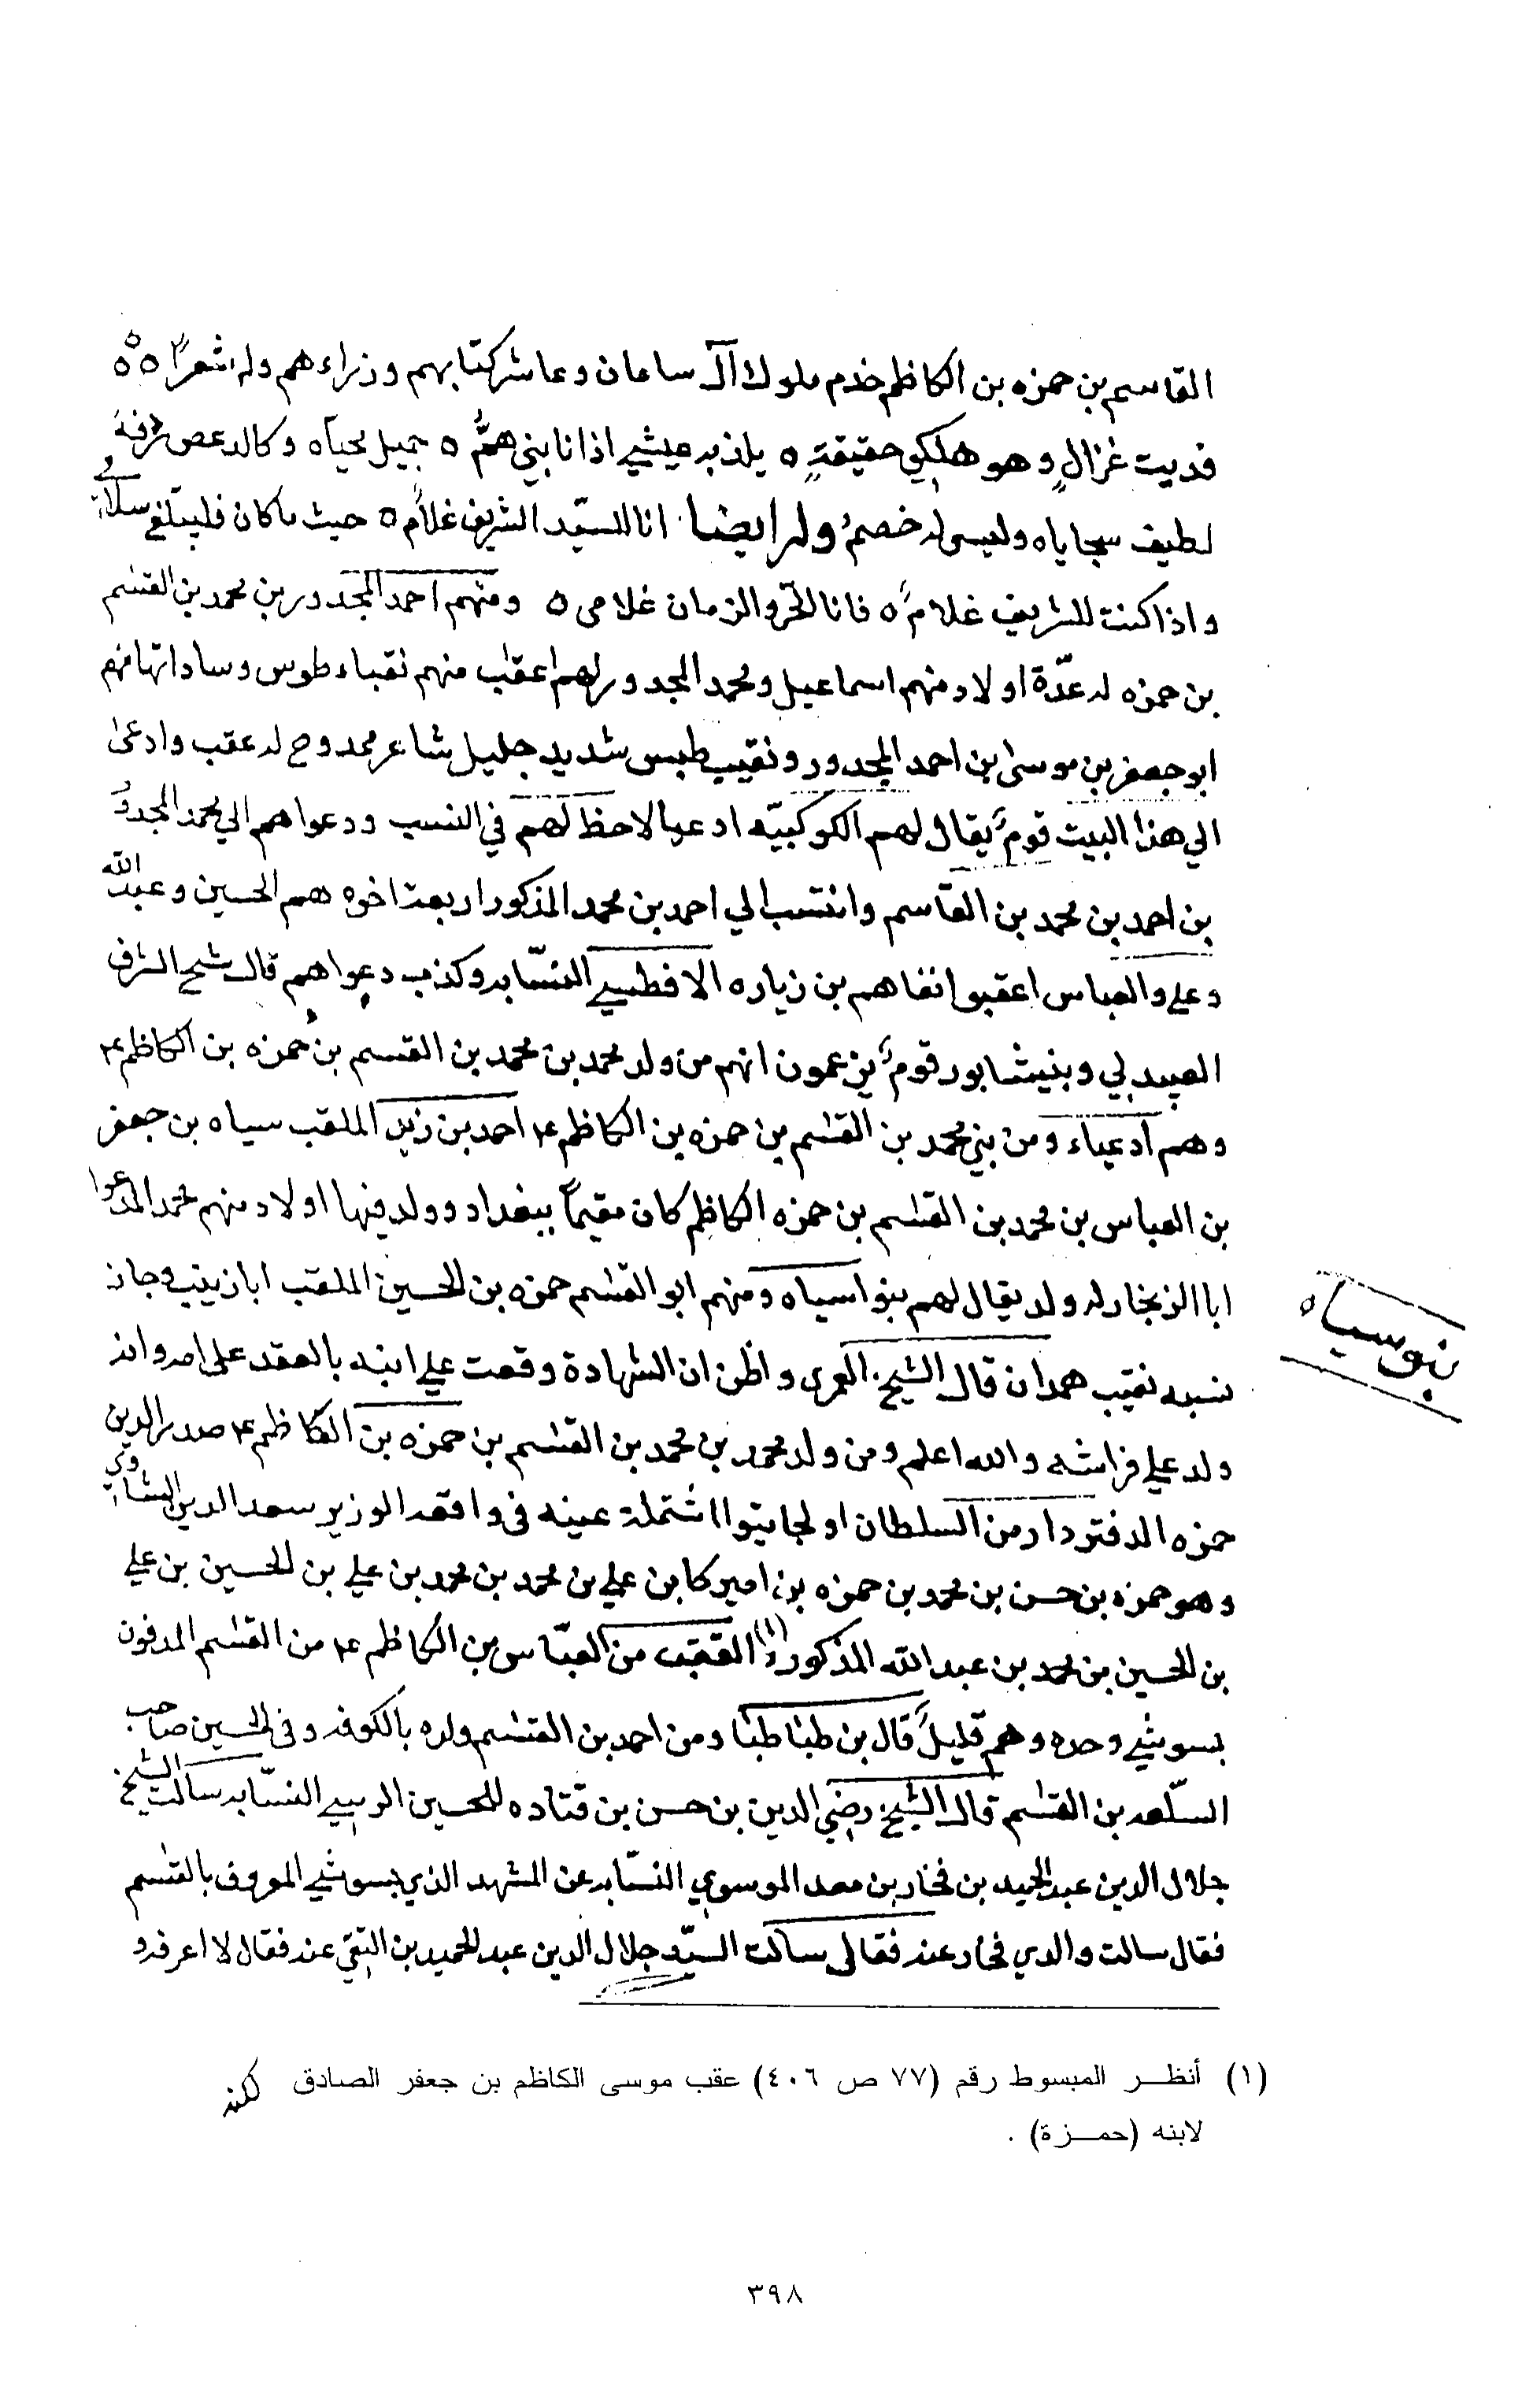 القاسم بن حمزه بن الكاظم خدم ملوك آل سامان وعاشر كتابهم ووزراءهم وله شعراً
فديت غزالٍ وهو هلكي حقيقةٍ ه يلذ به عيشي اذا نابني همٌّ ه جميل محياه وكالدعص ردفه
لطيف سجاياه وليس له خصمٌ وله ايضا انا للسيّد الشريف غلامٌ ه حيث ما كان فليبلّغ سلامي
واذا كنت للشريف غلامٌ ه فانا الحر والزمان غلامى ه ومنهم احمد المجدور بن محمد بن القسم
بن حمزه له عدّة اولاد منهم اسماعيل ومحمد المجدور لهم اعقاب منهم نقباء طوس وساداتها منهم
ابو جعفر بن موسى بن احمد المجدور ونقيب طبس شديد جليل شاعر ممدوح له عقب وادعى
الي هذا البيت قومٌ يقال لهم الكوكبيّه ادعيا لا حظ لهم في النسب ودعواهم الي محمد المجدور
بن احمد بن محمد بن القاسم وانتسب الي احمد بن محمد المذكور اربعة اخوه هم الحسين وعبد الله
وعلي والعباس اعقبوا نفاهم بن زياره الافطسي النسّابه وكذب دعواهم قال شيخ الشرف
العبيدلي وبنيشابور قومٌ يزعمون انهم من ولد محمد بن محمد بن القسم بن حمزه بن الكاظم ع
وهم ادعياء ومن بني محمد بن القسم بن حمزه بن الكاظم ع احمد بن زيد الملقب سياه بن جعفر
بن العباس بن محمد بن القسم بن حمزه الكاظم كان مقيماً ببغداد وولد فيها اولاد منهم محمد المدعوا
ابا الزنجار له ولد يقال لهم بنوا سياه ومنهم ابو القسم حمزه بن الحسين الملقب ابا زينب وجاز
نسبه نقيب همدان قال الشيخ العمرى واظن ان الشهادة وقعت علي ابنه بالعقد على امه وانه
ولد علي فراشه والله اعلم ومن ولد محمد بن محمد بن القسم بن حمزه بن الكاظم ع صدر الدين
حمزه الدفتردار من السلطان اولجايتوا اشتملة عينه فى واقعه الوزير سعد الدين الساوي
وهو حمزه بن حسن بن محمد بن حمزه بن اميركا بن علي بن محمد بن محمد بن علي بن الحسين بن علي
بن الحسين بن محمد بن عبد الله المذكور (١) العقب من العبّاس بن الكاظم ع من القسم المدفون
بسوشي وحده وهم قليلٌ قال بن طباطبا ومن احمد بن القسم ولده بالكوفه وفى الحسين صاحب
السلعه بن القسم قال الشيخ رضي الدين بن حسن بن قتاده للحسين الرسي النسّابه سالت الشيخ
جلال الدين عبد الحميد بن فخار بن معد الموسوي النسّابه عن المشهد الذي بسوشي المعروف بالقسم
فقال سالت والدي فخار عنه فقالى سالت السيّد جلال الدين عبد الحميد بن التقي عنه فقال لا اعرفه و
بنو سياه
(١) أنظر المبسوط رقم (٧٧ ص ٤٠٦) عقب موسى الكاظم بن جعفر الصادق لكنه
لابنه (حمزة) .
٣٩٨